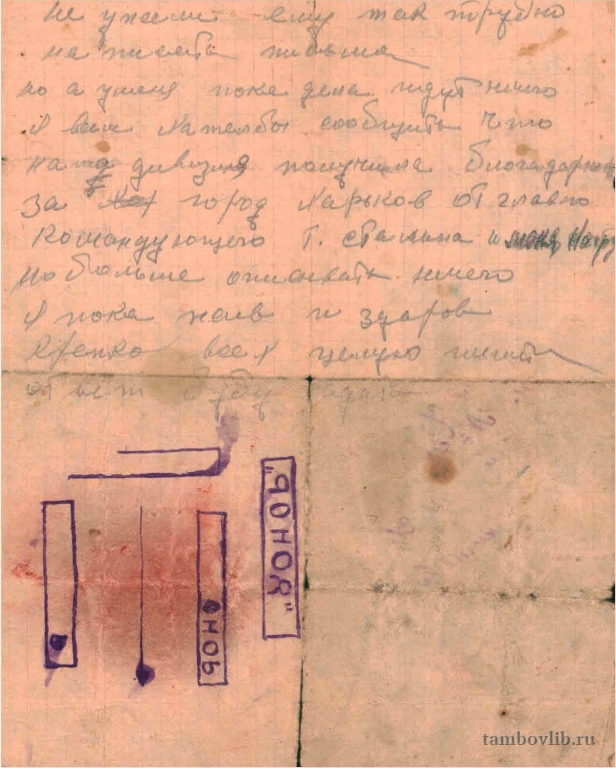 не ужели ему так трудно
написать письма
но а у меня пока дела идут ничего
я вам хателбы сообщить что
дивизия получила благодарно
за город Харьков от главно
командующего т. сталина и меня Нагр
но больше описивать ничего
я пока жив и здаров
Крепко всех целую пишите
ответ буду
tambovlib.ru